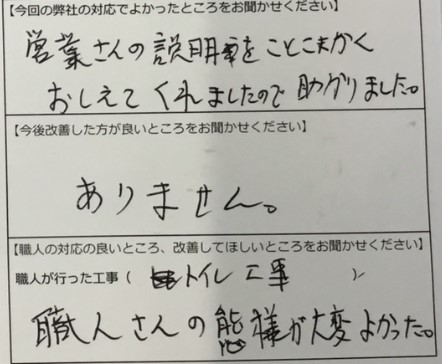 【今回の弊社の対応でよかったところをお聞かせください】
営業さんの説明事をことこまかく
おしえてくれましたので助グりました。
【今後改善した方が良いところをお聞かせください】
ありません。
【職人の対応の良いところ、改善してほしいところをお聞かせください】
職人が行った工事（ トイレ工事 ）
職人さんの態様が大変よかった。